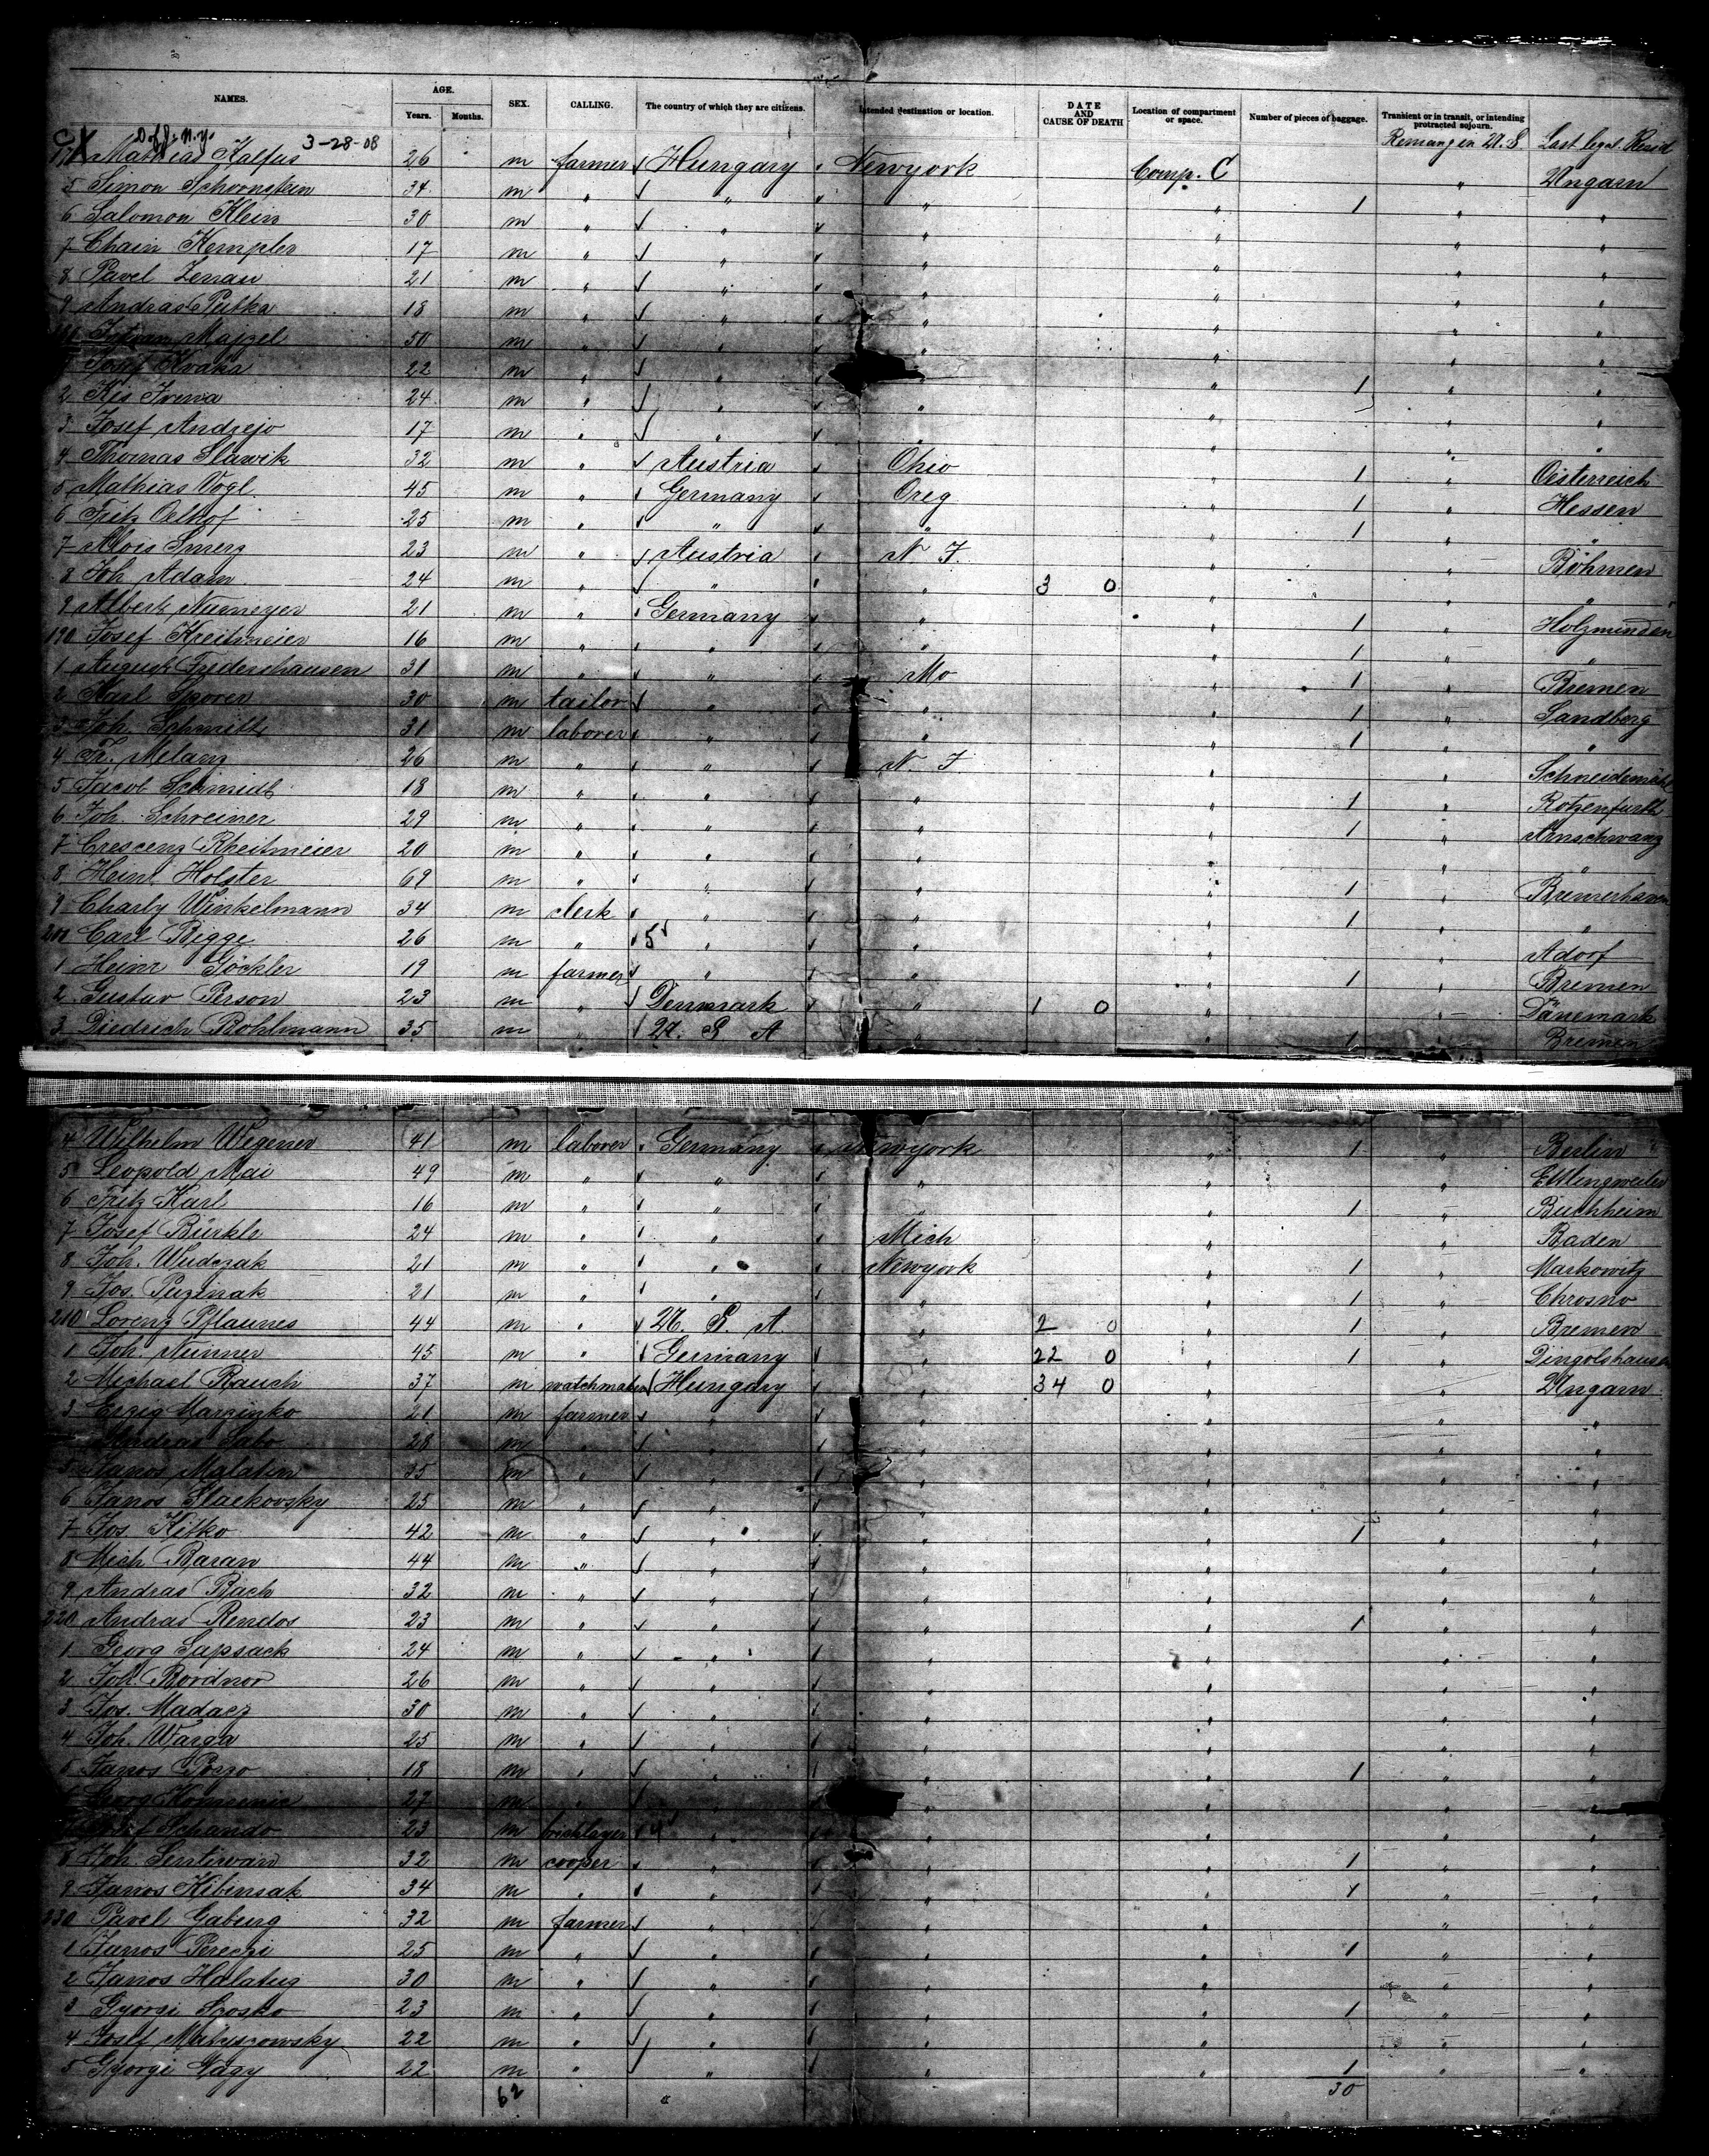 NAMES. AGE. Years. Months. SEX. CALLING. The country of which they are citizens. Intended destination or location. DATE AND CAUSE OF DEATH Location of compartment or space. Number of pieces of baggage. Transient or in transit, or intending protracted sojourn.
3-28-08 U.S Last legal Resid
Mathias Kalfus 26 m farmer Hungary Newyork Comp. C Ungarn
5 Simon Schoonstein 34 m " " " " 1 " "
6 Salomon Klein 30 m " " " " " "
7 Chain Kempler 17 m " " " " " "
8 Pavel Zenau 21 m " " " " " "
9 Andras Putka 18 m " " " " " "
Majzel 50 m " " " " " "
Josef 22 m " " " " 1 " "
2 Kis 24 m " " " " " "
3 Josef Andrejo 17 m " " " " " "
4 Thomas Slawik 32 m " Austria Ohio " 1 " Oesterreich
5 Mathias Vogl 45 m " Germany Oreg " 1 " Hessen
6 Fritz Oelhof 25 m " " " " 1 " "
7 Alois Smerz 23 m " Austria N. J. " " Böhmen
8 Joh. Adam 24 m " " " 3 0 " " "
9 Albert Numeyer 21 m " Germany " " 1 " Holzminden
190 Josef Kreitmeier 16 m " " " " 1 " "
1 August Fredershausen 31 m " " Mo " 1 " Bremen
2 Karl Sporer 30 m tailor " " " 1 " Sandberg
3 Joh. Schmitt 31 m laborer " " " 1 " "
4 Fr. Melanz 26 m " " N. J. " " Schneidemühl
5 Jacob Schmidt 18 m " " " " 1 " Rotzenfurth
6 Joh. Schreiner 29 m " " " " 1 " Arnschwang
7 Crescenz Rheitmeier 20 m " " " " " "
8 Heinr. Holster 69 m " " " " 1 " Bremerhaven
9 Charly Winkelmann 34 m clerk " " " 1 " "
200 Carl Bigge 26 m " 5 " " " " Adorf
1 Heinr Göckler 19 m farmer " " " 1 " Bremen
2 Gustav Person 23 m " Denmark " 1 0 " " Dänemark
3 Diedrich Bohlmann 35 m " U. S. A " " 1 " Bremen
4 Wilhelm Wegener 41 m laborer Germany Newyork " 1 " Berlin
5 Leopold Mai 49 m " " " " " Ettlingweiler
6 Fritz Karl 16 m " " " " 1 " Buchheim
7 Josef Bürkle 24 m " " Mich " " Baden
8 Joh. Wudczak 21 m " " Newyork " 1 " Markowitz
9 Jos. Puzinak 21 m " " " " 1 " Chrosno
210 Lorenz Pflaumes 44 m " U. S. A. " 2 0 " 1 " Bremen
1 Joh. Nunner 45 m " Germany " 22 0 " 1 " Dingolshausen
2 Michael Rauch 37 m watchmaker Hungary " 34 0 " " Ungarn
3 Marzinko 21 m farmer " " " " "
Andras Sabo 28 m " " " " " "
5 Janos Malatin 35 m " " " " " "
6 Janos Slackovsky 25 m " " " " " "
7 Jos Kitko 42 m " " " " 1 " "
8 Mich Baran 44 m " " " " " "
9 Andras Bach 32 m " " " " " "
220 Andras Rendos 23 m " " " " 1 " "
1 Georg Sapsack 24 m " " " " " "
2 Joh. Bordnor 26 m " " " " " "
3 Jos. Madacz 30 m " " " " " "
4 Joh. Warga 25 m " " " " " "
5 Janos Pozzo 18 m " " " " 1 " "
Georg 27 m " " " " " "
Schando 23 m bricklayer 4 " " " " "
8 Joh. Sentiwan 32 m cooper " " " 1 " "
9 Janos Kibinsak 34 m " " " " 1 " "
230 Pavel Gaburg 32 m farmer " " " " "
1 Janos Pereczi 25 m " " " " 1 " "
2 Janos Halatug 30 m " " " " " "
3 Györgi Szosko 23 m " " " " 1 " "
4 Josef Matyszowsky 22 m " " " " " "
5 Györgi Nagy 22 m " " " 1 " "
62 " 30